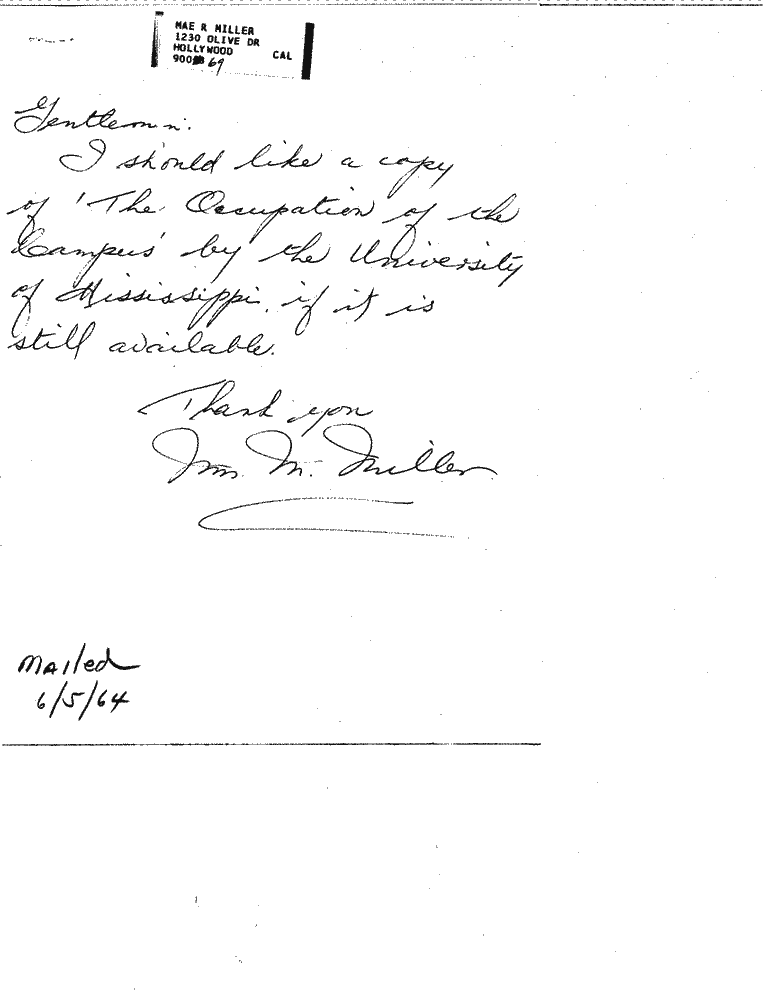 MAE R MILLER
1230 OLIVE DR
HOLLYWOOD CAL
900 69
Gentlemen.
I should like a copy
of 'The Occupation of the
Campus' by the University
of Mississippi, if it is
still available.
Thank you
Mrs. M. Miller
Mailed
6/5/64